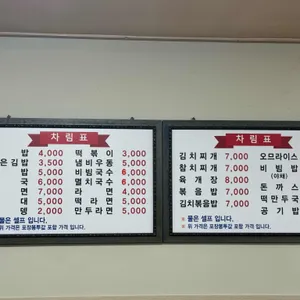 차림표
밥 4,000 떡볶이 3,000
은김밥 3,500 냄비우동 5,000
밥 5,000 비빔국수 6,000
국 6,000 멸치국수 6,000
면 7,000 라면 4,000
대 5,000 떡라면 5,000
뎅 2,000 만두라면 5,000
물은 셀프 입니다.
위 가격은 포장봉투값 포함 가격 입니다.
차림표
김치찌개 7,000 오므라이스
참치찌개 7,000 비빔밥
(야채)
육개장 8,000 돈까스
볶음밥 7,000 떡만두국
김치볶음밥 7,000 공기밥
물은 셀프 입니다.
※ 위 가격은 포장봉투값 포함 가격 입니다.